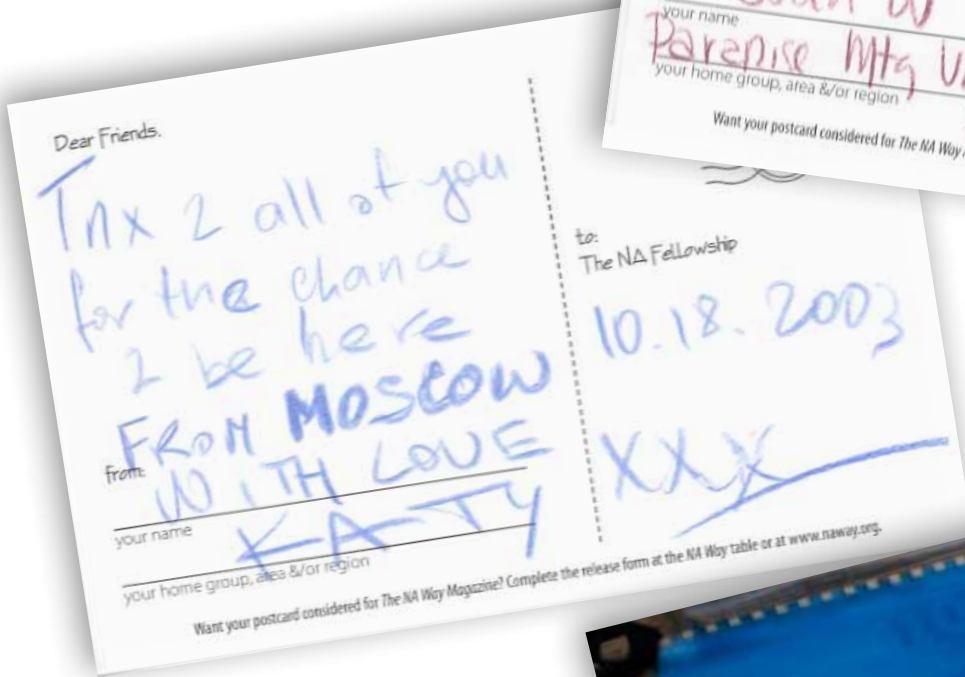 your name
Paradise Mtg
your home group, area &/or region
Want your postcard considered for The NA Way
Dear Friends,
Tnx 2 all of you
for the chance
2 be here
FROM MOSCOW
from:
WITH LOVE
your name
KATY
your home group, area &/or region
to:
The NA Fellowship
10.18.2003
XXX
Want your postcard considered for The NA Way Magazine? Complete the release form at the NA Way table or at www.naway.org.